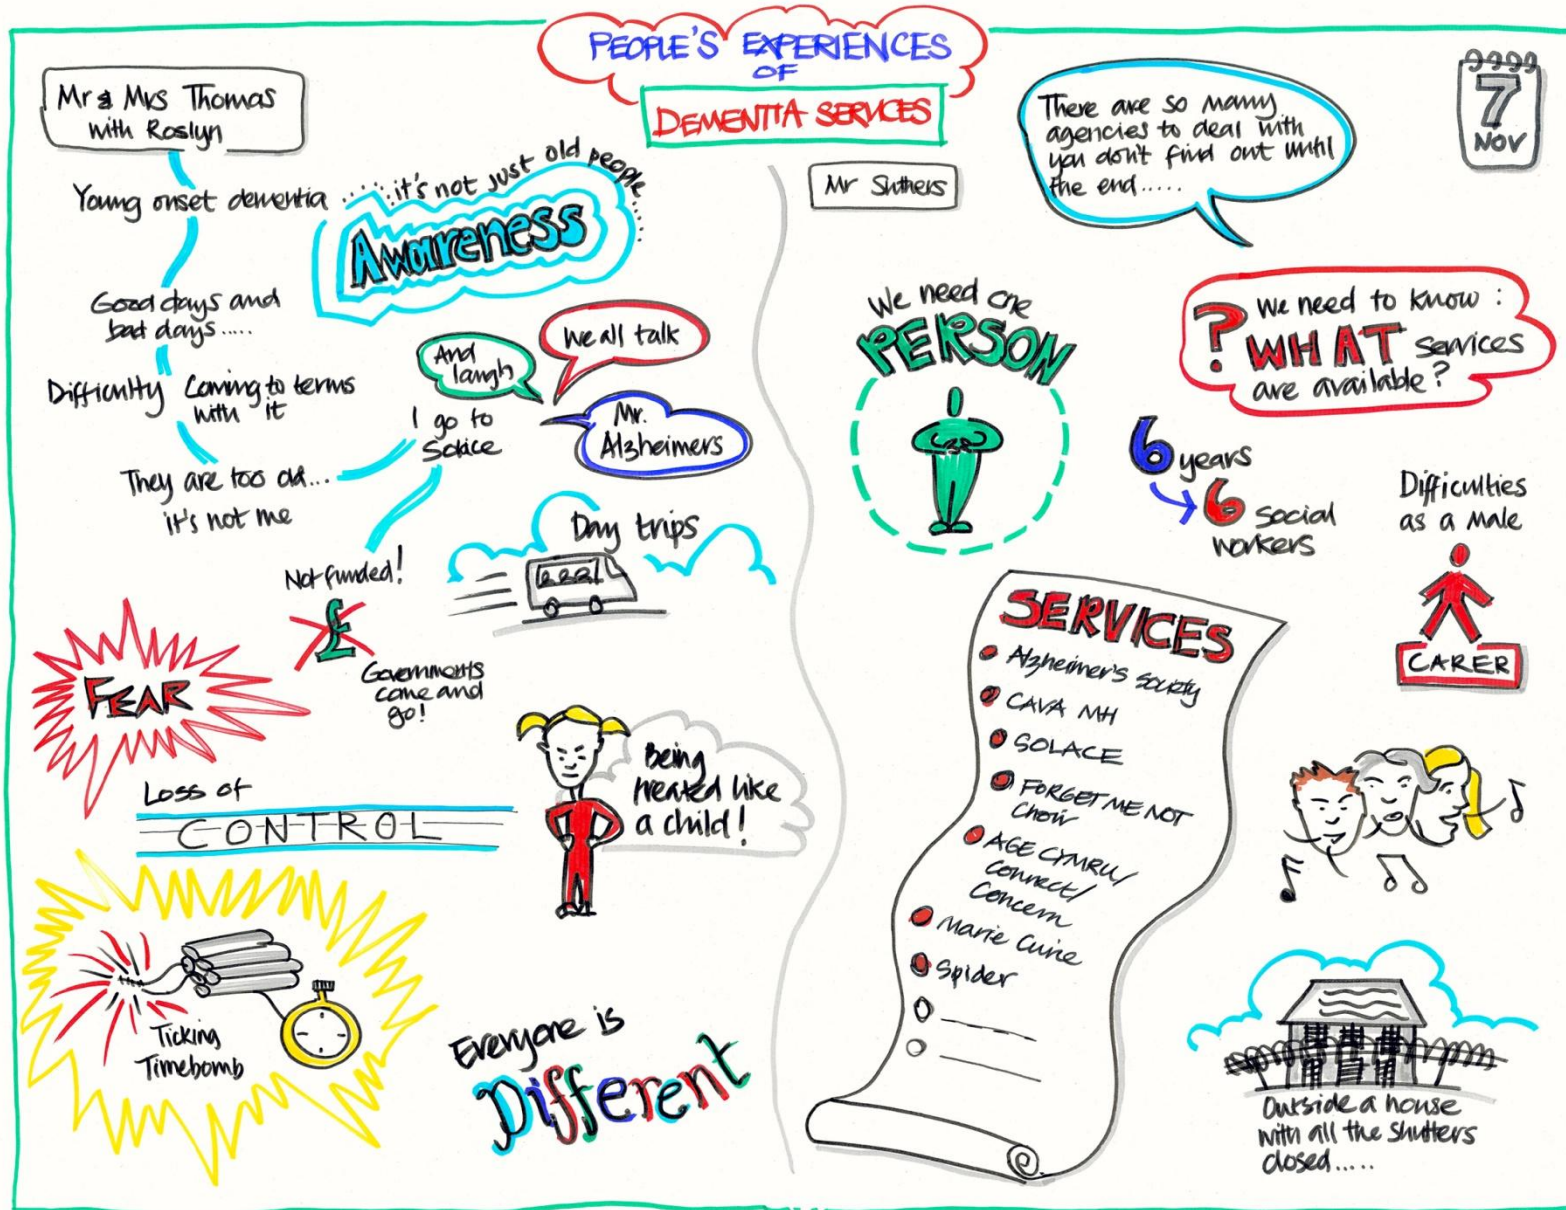 PEOPLE'S EXPERIENCES
OF
DEMENTIA SERVICES
7
NOV
Mr & Mrs Thomas
with Roslyn
Young onset dementia
....it's not just old people....
Awareness
Good days and
bad days.....
Difficulty Coming to terms
with it
They are too old...
it's not me
I go to
Solace
And
laugh
We all talk
Mr.
Alzheimers
Not funded!
£
Governments
come and
go!
Day trips
FEAR
Loss of
CONTROL
Being
treated like
a child!
Ticking
Timebomb
Everyone is
Different
Mr Suthers
There are so many
agencies to deal with
you don't find out until
the end.....
We need one
PERSON
? We need to know:
WHAT services
are available?
6 years
6 social
workers
Difficulties
as a male
CARER
SERVICES
Alzheimer's Society
CAVA MH
SOLACE
FORGET ME NOT
Choir
AGE CYMRU/
Connect/
Concern
Marie Curie
Spider
Outside a house
with all the shutters
closed.....